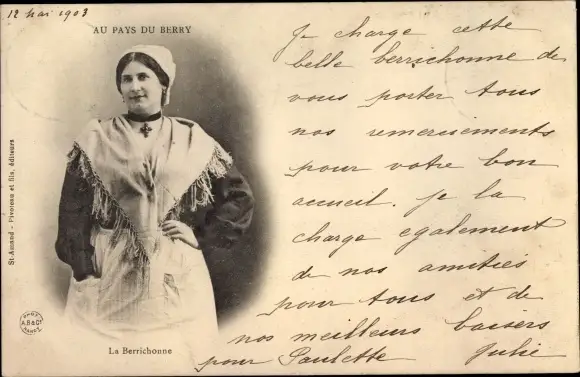 12 mai 1903
AU PAYS DU BERRY
Je charge cette
belle berrichonne de
vous porter tous
nos remerciements
pour votre bon
accueil. je la
charge egalement
de nos amitiés
pour tous et de
nos meilleurs baisers
pour Paulette Julie
St-Amand - Pivoteau et fils, éditeurs
A.B & Cie
NANCY
La Berrichonne